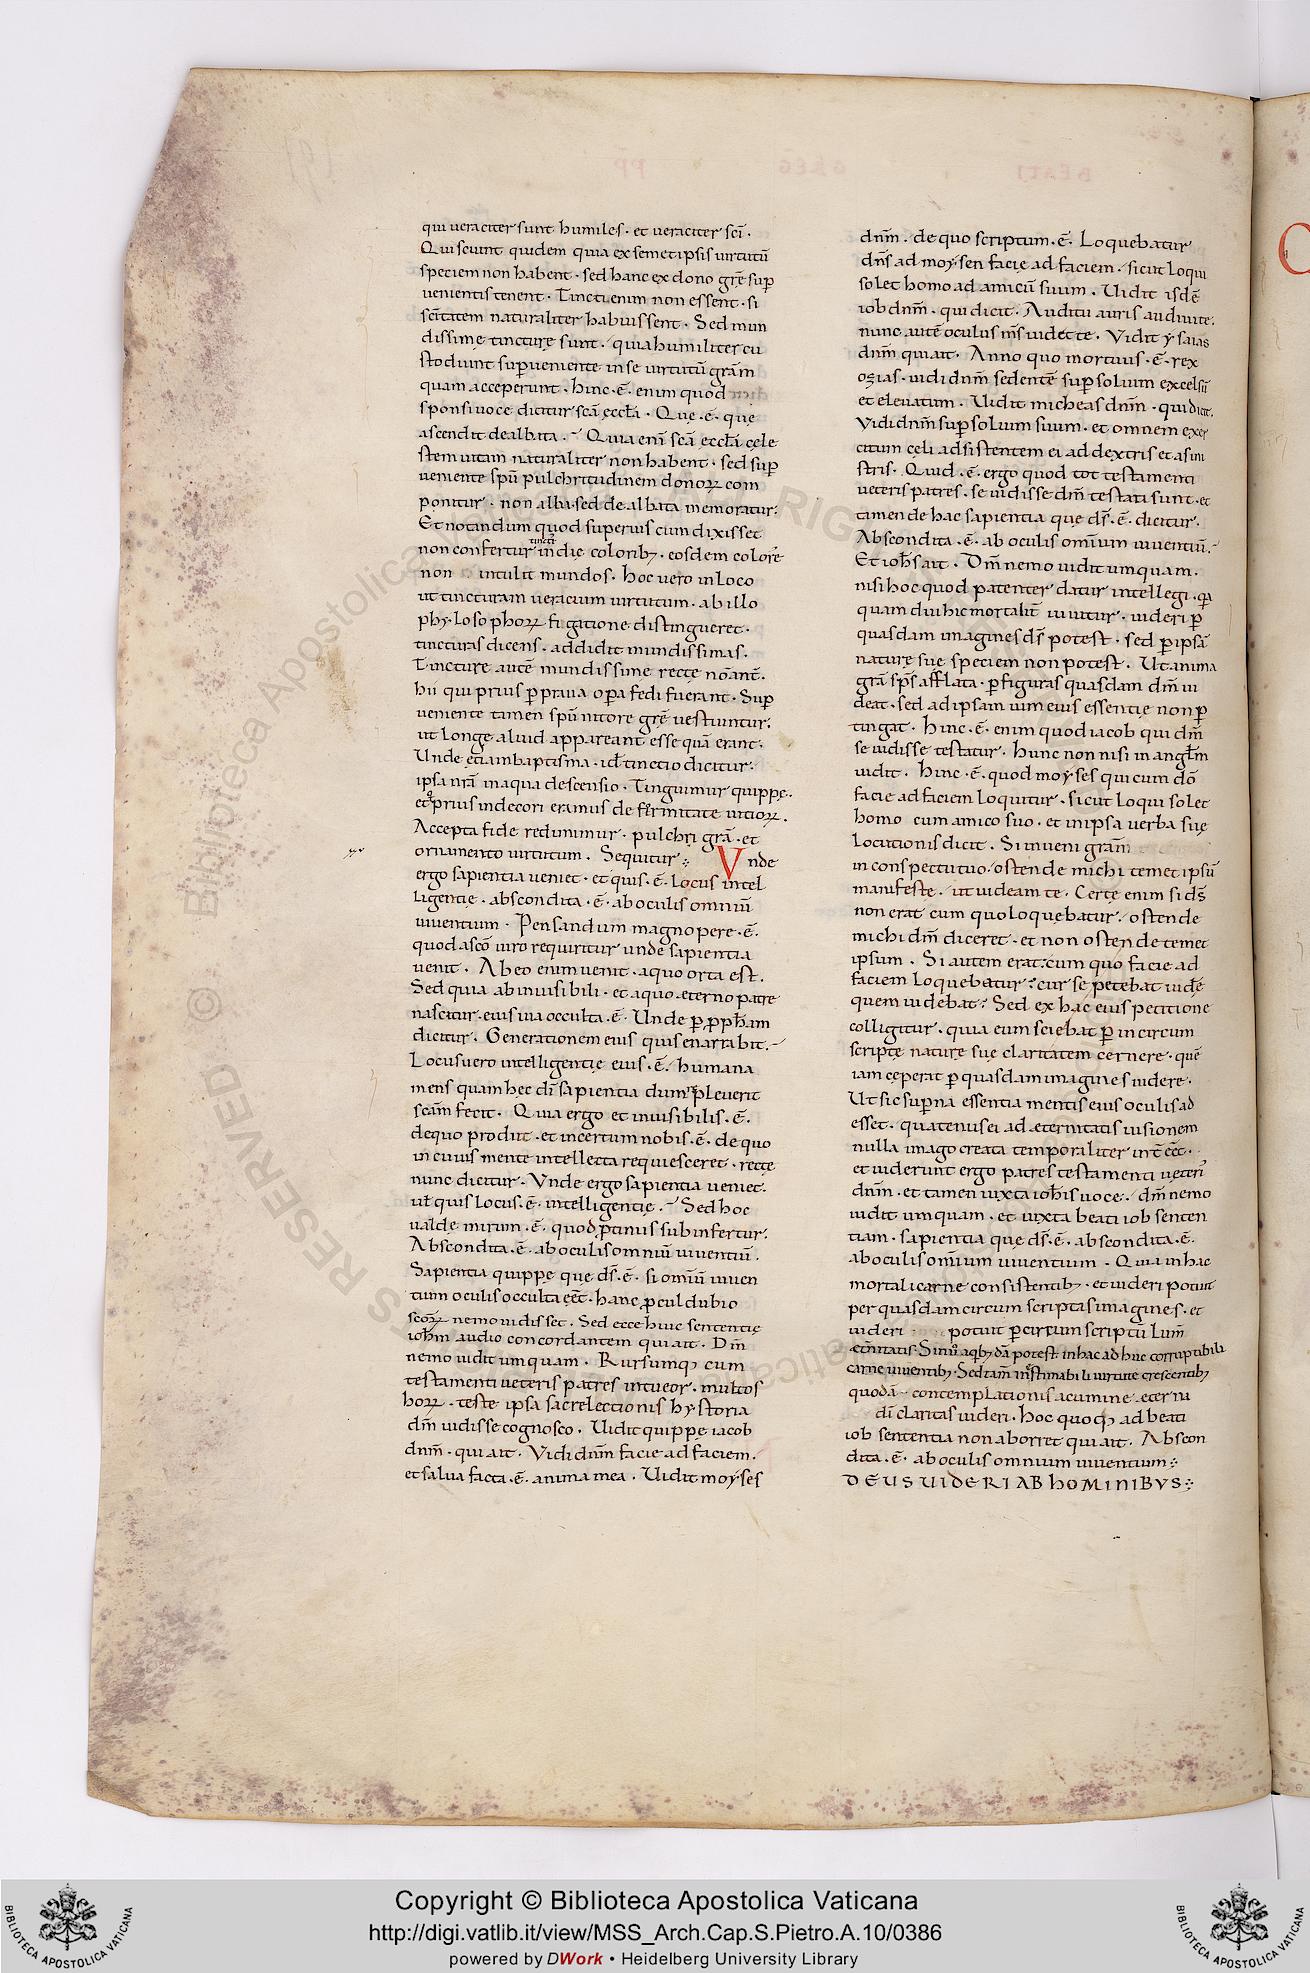 qui ueraciter sunt humiles · et ueraciter sc̄i ·
Qui sciunt quidem quia ex semetipsis uirtutū
speciem non habent · sed hanc ex dono gr̄ę sup̱
uenientis tenent · Tincti enim non essent · si
sc̄itatem naturaliter habuissent · Sed mun
dissimę tincturę sunt · quia humiliter cu
stodiunt sup̱uenientē in se uirtutū gr̄am
quam acceperunt · hinc · ē · enim quod
sponsi uoce dicitur sc̄a ęccl̄a · Quę · ē · quę
ascendit dealbata · Quia eni sc̄a ęccl̄a cęle
stem uitam naturaliter non habent · sed sup̱
ueniente sp̄u pulchritudinem donoꝝ com
ponitur · non alba · sed dealbata memoratur ·
Et notandum quod superius cum dixisset
non confertur tinctis indię coloribꝫ · eosdem colore
non intulit mundos · hoc uero in loco
ut tincturam ueracium uirtutum · ab illo
phylosophoꝝ fugatione distingueret ·
tincturas dicens · addidit mundissimas ·
Tincture autē mundissime recte nōant̄ ·
hii qui prius p̱ praua op̱a fedi fuerant · Sup̱
ueniente tamen sp̄u nitore gr̄ę uestiuntur ·
ut longe aliud appareant esse quā erant ·
Unde etiā in baptisma · id · tinctio dicitur ·
ipsa nr̄a in aqua descensio · Tinguimur quippe ·
et prius indecori eramus deformitate uitioꝝ ·
Accepta fide redinimur · pulchri gr̄a · et
ornamento uirtutum · Sequitur · Vnde
ergo sapientia ueniet · et quis · ē · locus intel
ligentię · abscondita · ē · ab oculis omniū
uiuentium · Pensandum magnopere · ē ·
quod a sc̄o uiro requiritur unde sapientia
uenit · Ab eo enim uenit · a quo orta est ·
Sed quia ab inuisibili · et a quo ęterno patre
nascitur · eius uia occulta · ē · Unde p̱ pph̄am
dicitur · Generationem eius quis enarrabit ·
Locus uero intelligentię eius · ē · humana
mens quam hec dī sapientia dum repleuerit
sc̄am fecit · Quia ergo et inuisibilis · ē ·
de quo prodiit · et incertum nobis · ē · de quo
in cuius mente intellecta requiesceret · recte
nunc dicitur · Vnde ergo sapientia ueniet ·
ul̄ quis locus · ē · intelligentię · Sed hoc
ualde mirum · ē · quod p̱tinus subinfertur ·
Abscondita · ē · ab oculis omniū uiuentiū ·
Sapientia quippe que dś · ē · si omīū uiuen
tium oculis occulta eēt · hanc p̱cul dubio
sc̄oꝝ nemo uidisset · Sed ecce huic sententię
ioh̄m audio concordantem qui ait · Dm̄
nemo uidit umquam · Rursumqꝫ cum
testamenti ueteris patres intueor · multos
hoꝝ · teste ipsa sacre lectionis hystoria
dm̄ uidisse cognosco · Uidit quippe iacob
dn̄m · qui ait · Vidi dn̄m facie ad faciem ·
et salua facta · ē · anima mea · Uidit moyses
dn̄m · de quo scriptum · ē · Loquebatur
dn̄s ad moysen facie ad faciem · sicut loqui
solet homo ad amicū suum · Uidit isdē
iob dn̄m · qui dicit · Auditu auris audiui te ·
nunc autē oculus m̄s uidet te · Vidit ysaias
dn̄m qui ait · Anno quo mortuus · ē · rex
ozias · uidi dn̄m sedentē sup̱ solium excelsū
et eleuatum · Uidit micheas dn̄m · qui dicit ·
Vidi dn̄m sup̱ solium suum · et omnem exer
citum cęli adsistentem ei ad dextris et a sini
stris · Quid · ē · ergo quod tot testamenti
ueteris patres · se uidisse dm̄ testati sunt · et
tamen de hac sapientia que dś · ē · dicitur ·
Abscondita · ē · ab oculis omīum uiuentiū ·
Et ioh̄s ait · Dm̄ nemo uidit umquam ·
nisi hoc quod patenter datur intellegi · qa
quam diu hic mortalit̄ uiuitur · uideri p̱
quasdam imagines dś potest · sed p̱ ipsā
naturę suę speciem non potest · Ut anima
gr̄a sp̄s afflata · p̱ figuras quasdam dm̄ ui
deat · sed ad ipsam uim eius essentię non p̱
tingat · hinc · ē · enim quod iacob qui dm̄
se uidisse testatur · hunc non nisi in angl̄m
uidit · hinc · ē · quod moyses qui cum dō
facie ad faciem loquitur · sicut loqui solet
homo cum amico suo · et in ipsa uerba suę
locutionis dicit · Si inueni gram
in conspectu tuo · ostende michi temet ipsū
manifeste · ut uideam te · Certe enim si dś
non erat cum quo loquebatur · ostende
michi dm̄ diceret · et non ostende temet
ipsum · Si autem erat · cum quo facie ad
faciem loquebatur · cur se petebat uidē
quem uidebat · Sed ex hac eius petitione
colligitur · quia eum sciebat p̱ incircum
scriptę naturę suę claritatem cernere · quē
iam ceperat p̱ quasdam imagines uidere ·
Ut sic sup̱na essentia mentis eius oculis ad
esset · quatenus ei ad ęternitatis uisionem
nulla imago creata temporaliter int̄ eēt ·
et uiderunt ergo patres testamenti ueteri
dn̄m · et tamen iuxta ioh̄is uoce · dm̄ nemo
uidit umquam · et iuxta beati iob senten
tiam · sapientia que dś · ē · abscondita · ē ·
ab oculis omīum uiuentium · Quia in hac
mortali carne consistentibꝫ · et uideri potuit
per quasdam circum scriptas imagines · et
uideri potuit p̱ circum scriptū lum̄
ęt̄nitatis · Sin uº a qbꝫdā potest in hac adhuc corruptibili
carne uiuentibꝫ · Sed tam̄ inęstimabili uirtute crescentibꝫ
quodā contemplationis acumine ęterni
dī claritas uideri · hoc quoqꝫ ad beati
iob sententia non aborret qui ait · Abscon
dita · ē · ab oculis omnium uiuentium ·
DEUS UIDERI AB hOMINIBVS ·
Copyright © Biblioteca Apostolica Vaticana
http://digi.vatlib.it/view/MSS_Arch.Cap.S.Pietro.A.10/0386
powered by DWork • Heidelberg University Library
BIBLIOTECA APOSTOLICA VATICANA
BIBLIOTECA APOSTOLICA VATICANA